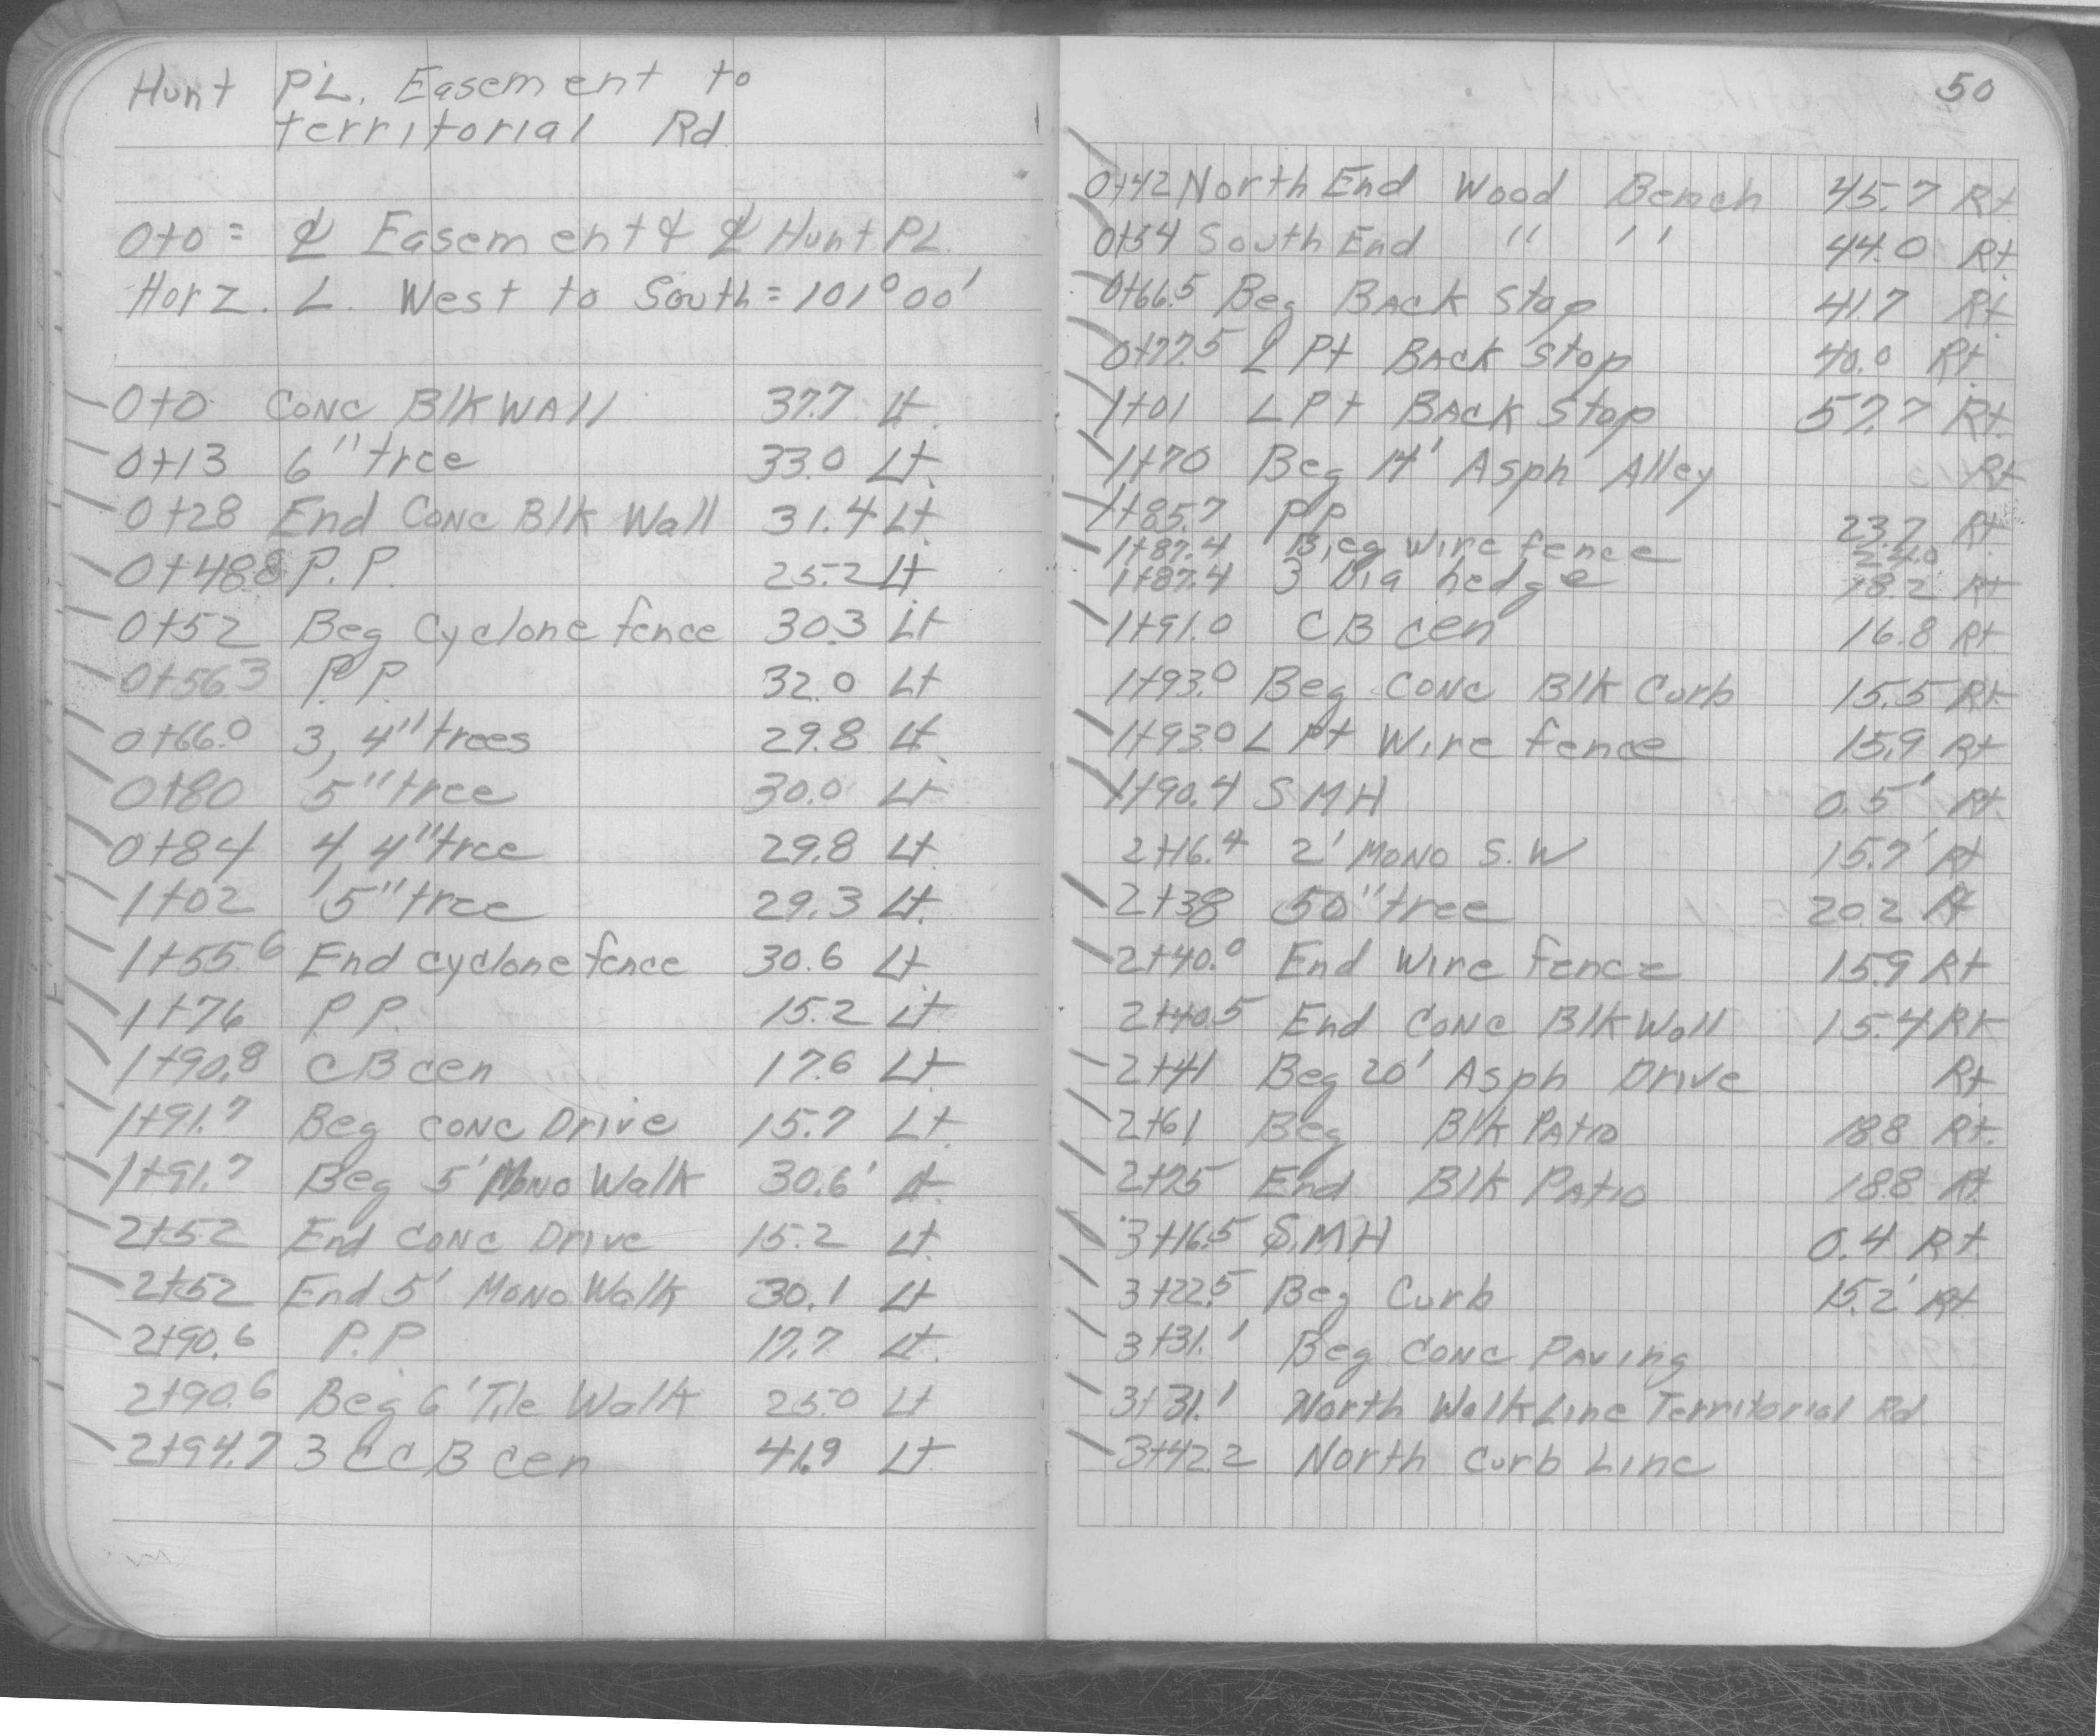 Hunt PL. Easement to
territorial Rd
0+0 = ℄ Easement & ℄ Hunt PL.
Horz. ∠. West to South = 101°00'
0+0 Conc Blk Wall 37.7 Lt.
0+13 6" tree 33.0 Lt.
0+28 End Conc Blk Wall 31.4 Lt.
0+48.8 P.P. 25.2 Lt.
0+52 Beg Cyclone fence 30.3 Lt
0+56.3 P.P. 32.0 Lt
0+66.0 3, 4" trees 29.8 Lt.
0+80 5" tree 30.0 Lt
0+84 4, 4" tree 29.8 Lt.
1+02 5" tree 29.3 Lt.
1+55.6 End cyclone fence 30.6 Lt
1+76 P.P. 15.2 Lt.
1+90.8 CB cen 17.6 Lt.
1+91.7 Beg conc Drive 15.7 Lt.
1+91.7 Beg 5' Mono Walk 30.6' Lt.
2+52 End conc Drive 15.2 Lt.
2+52 End 5' Mono Walk 30.1 Lt
2+90.6 P.P 17.7 Lt.
2+90.6 Beg 6' Tile Walk 25.0 Lt
2+94.7 3 CCB cen 41.9 Lt.
50
0+42 North End Wood Bench 45.7 Rt.
0+54 South End " " 44.0 Rt.
0+66.5 Beg Back Stop 41.7 Rt.
0+77.5 ∠ Pt Back Stop 40.0 Rt.
1+01 ∠ Pt Back Stop 57.7 Rt.
1+70 Beg 14' Asph Alley Rt
1+85.7 P.P. 23.7 Rt.
1+87.4 Beg wire fence 24.0
1+87.4 3 Dia hedge 18.2 Rt
1+91.0 CB cen 16.8 Rt
1+93.0 Beg Conc Blk Curb 15.5 Rt
1+93.0 ∠ Pt Wire fence 15.9 Rt
1+90.4 SMH 0.5' Rt.
2+16.4 2' Mono S.W 15.7' Rt
2+38 50" tree 20.2 Rt
2+40.0 End Wire fence 15.9 Rt
2+40.5 End Conc Blk Wall 15.4 Rt
2+41 Beg 20' Asph Drive Rt.
2+61 Beg Blk Patio 18.8 Rt.
2+75 End Blk Patio 18.8 Rt.
3+16.5 S.MH 0.4 Rt
3+22.5 Beg Curb 15.2' Rt.
3+31.1 Beg Conc Paving
3+31.1 North Walk Line Territorial Rd
3+42.2 North Curb Line